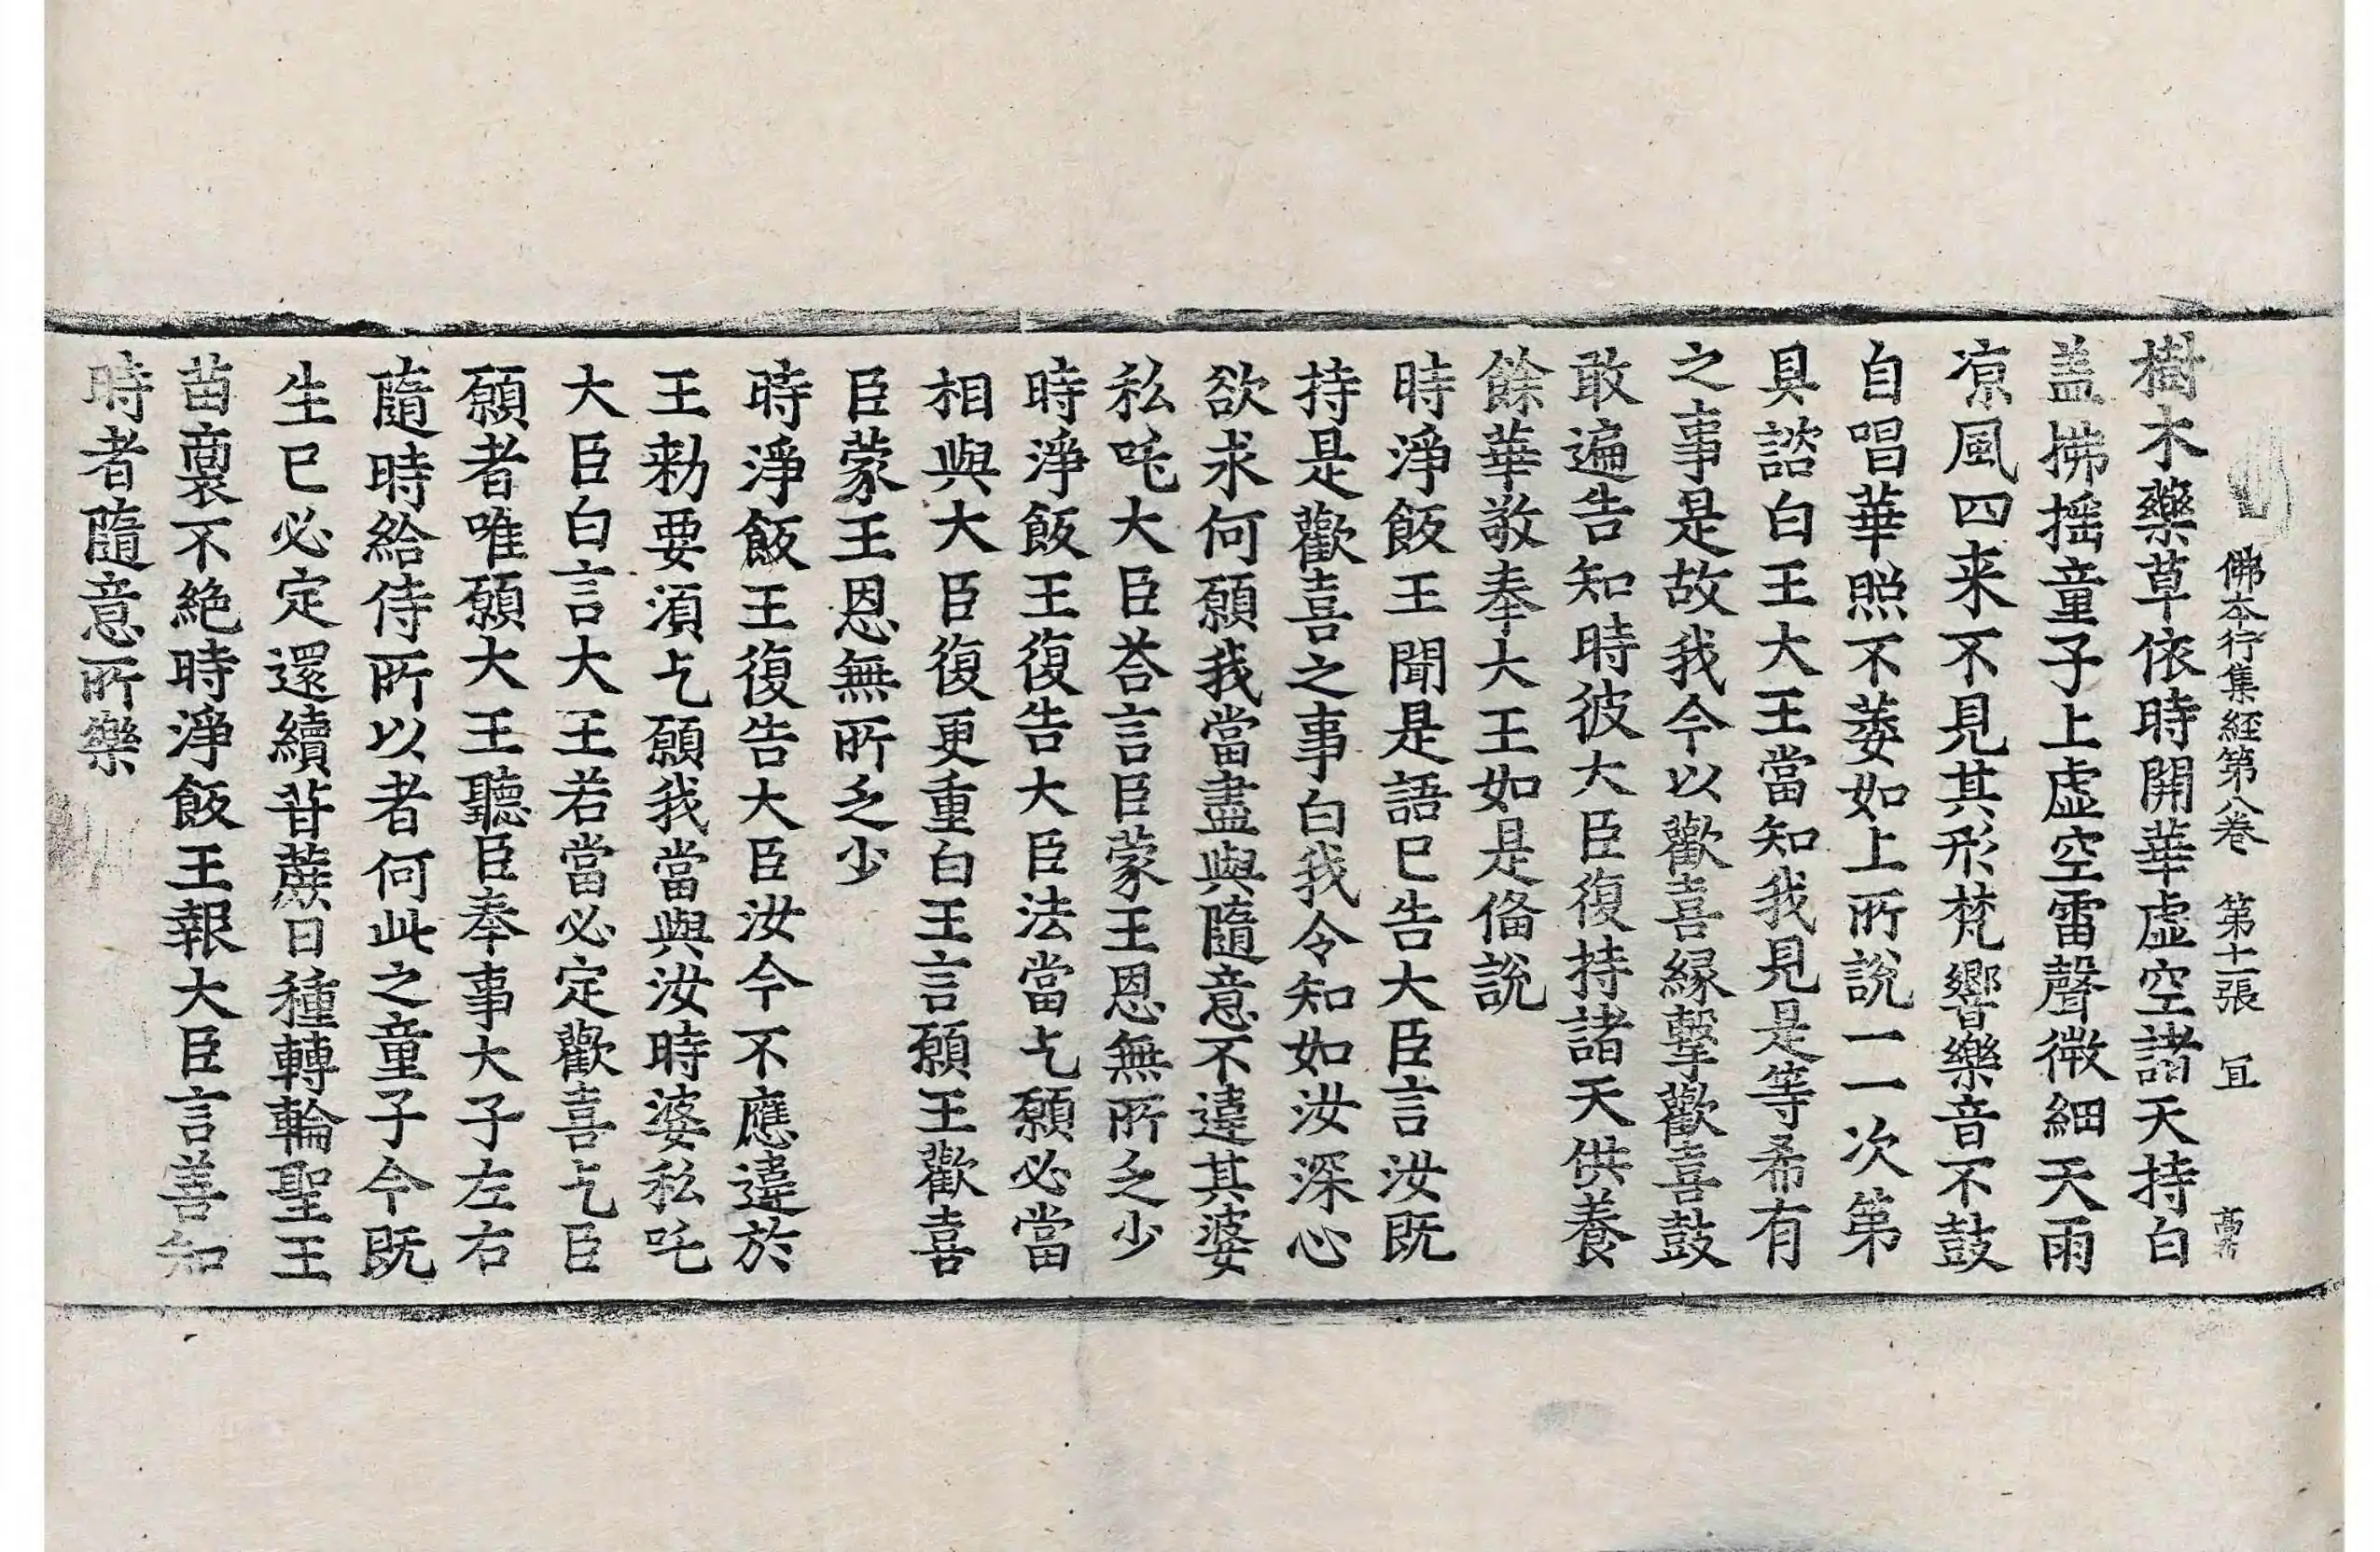 佛本行集經第八卷　第十二張　冝
樹木藥草依時開華虛空諸天持白
盖拂揺童子上虛空雷聲微細天雨
凉風四来不見其形梵響樂音不鼓
自唱華照不萎如上所說一一次第
具諮白王大王當知我見是等希有
之事是故我今以歡喜緣擊歡喜鼓
敢遍告知時彼大臣復持諸天供養
餘華敬奉大王如是俻說
時淨飯王聞是語已告大臣言汝既
持是歡喜之事白我令知如汝深心
欲求何願我當盡與隨意不違其婆
私吒大臣荅言臣蒙王恩無所乏少
時淨飯王復告大臣法當乞願必當
相與大臣復更重白王言願王歡喜
臣蒙王恩無所乏少
時淨飯王復告大臣汝今不應違於
王勑要湏乞願我當與汝時婆私吒
大臣白言大王若當必定歡喜乞臣
願者唯願大王聽臣奉事大子左右
隨時給侍所以者何此之童子今既
生已必定還續甘蔗日種轉輪聖王
苗裔不絕時淨飯王報大臣言善知
時者隨意所樂